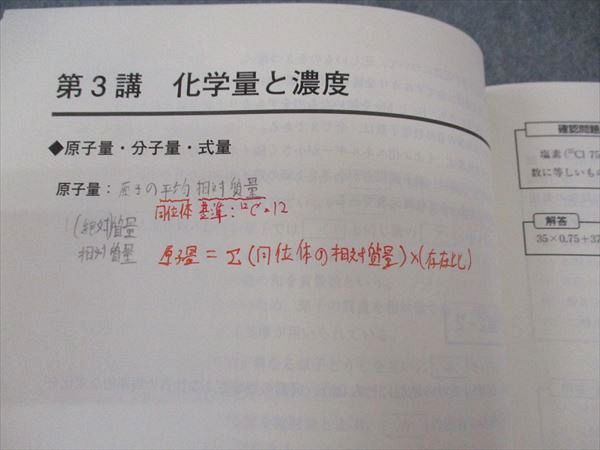 第3講 化学量と濃度
◆原子量・分子量・式量
原子量：原子の平均相対質量
同位体 基準：¹²C=12
(絶対)質量
相対質量
原子量=Σ(同位体の相対質量)×(存在比)
確認問題
塩素(³⁵Cl 75
数に等しいもの
解答
35×0.75+37